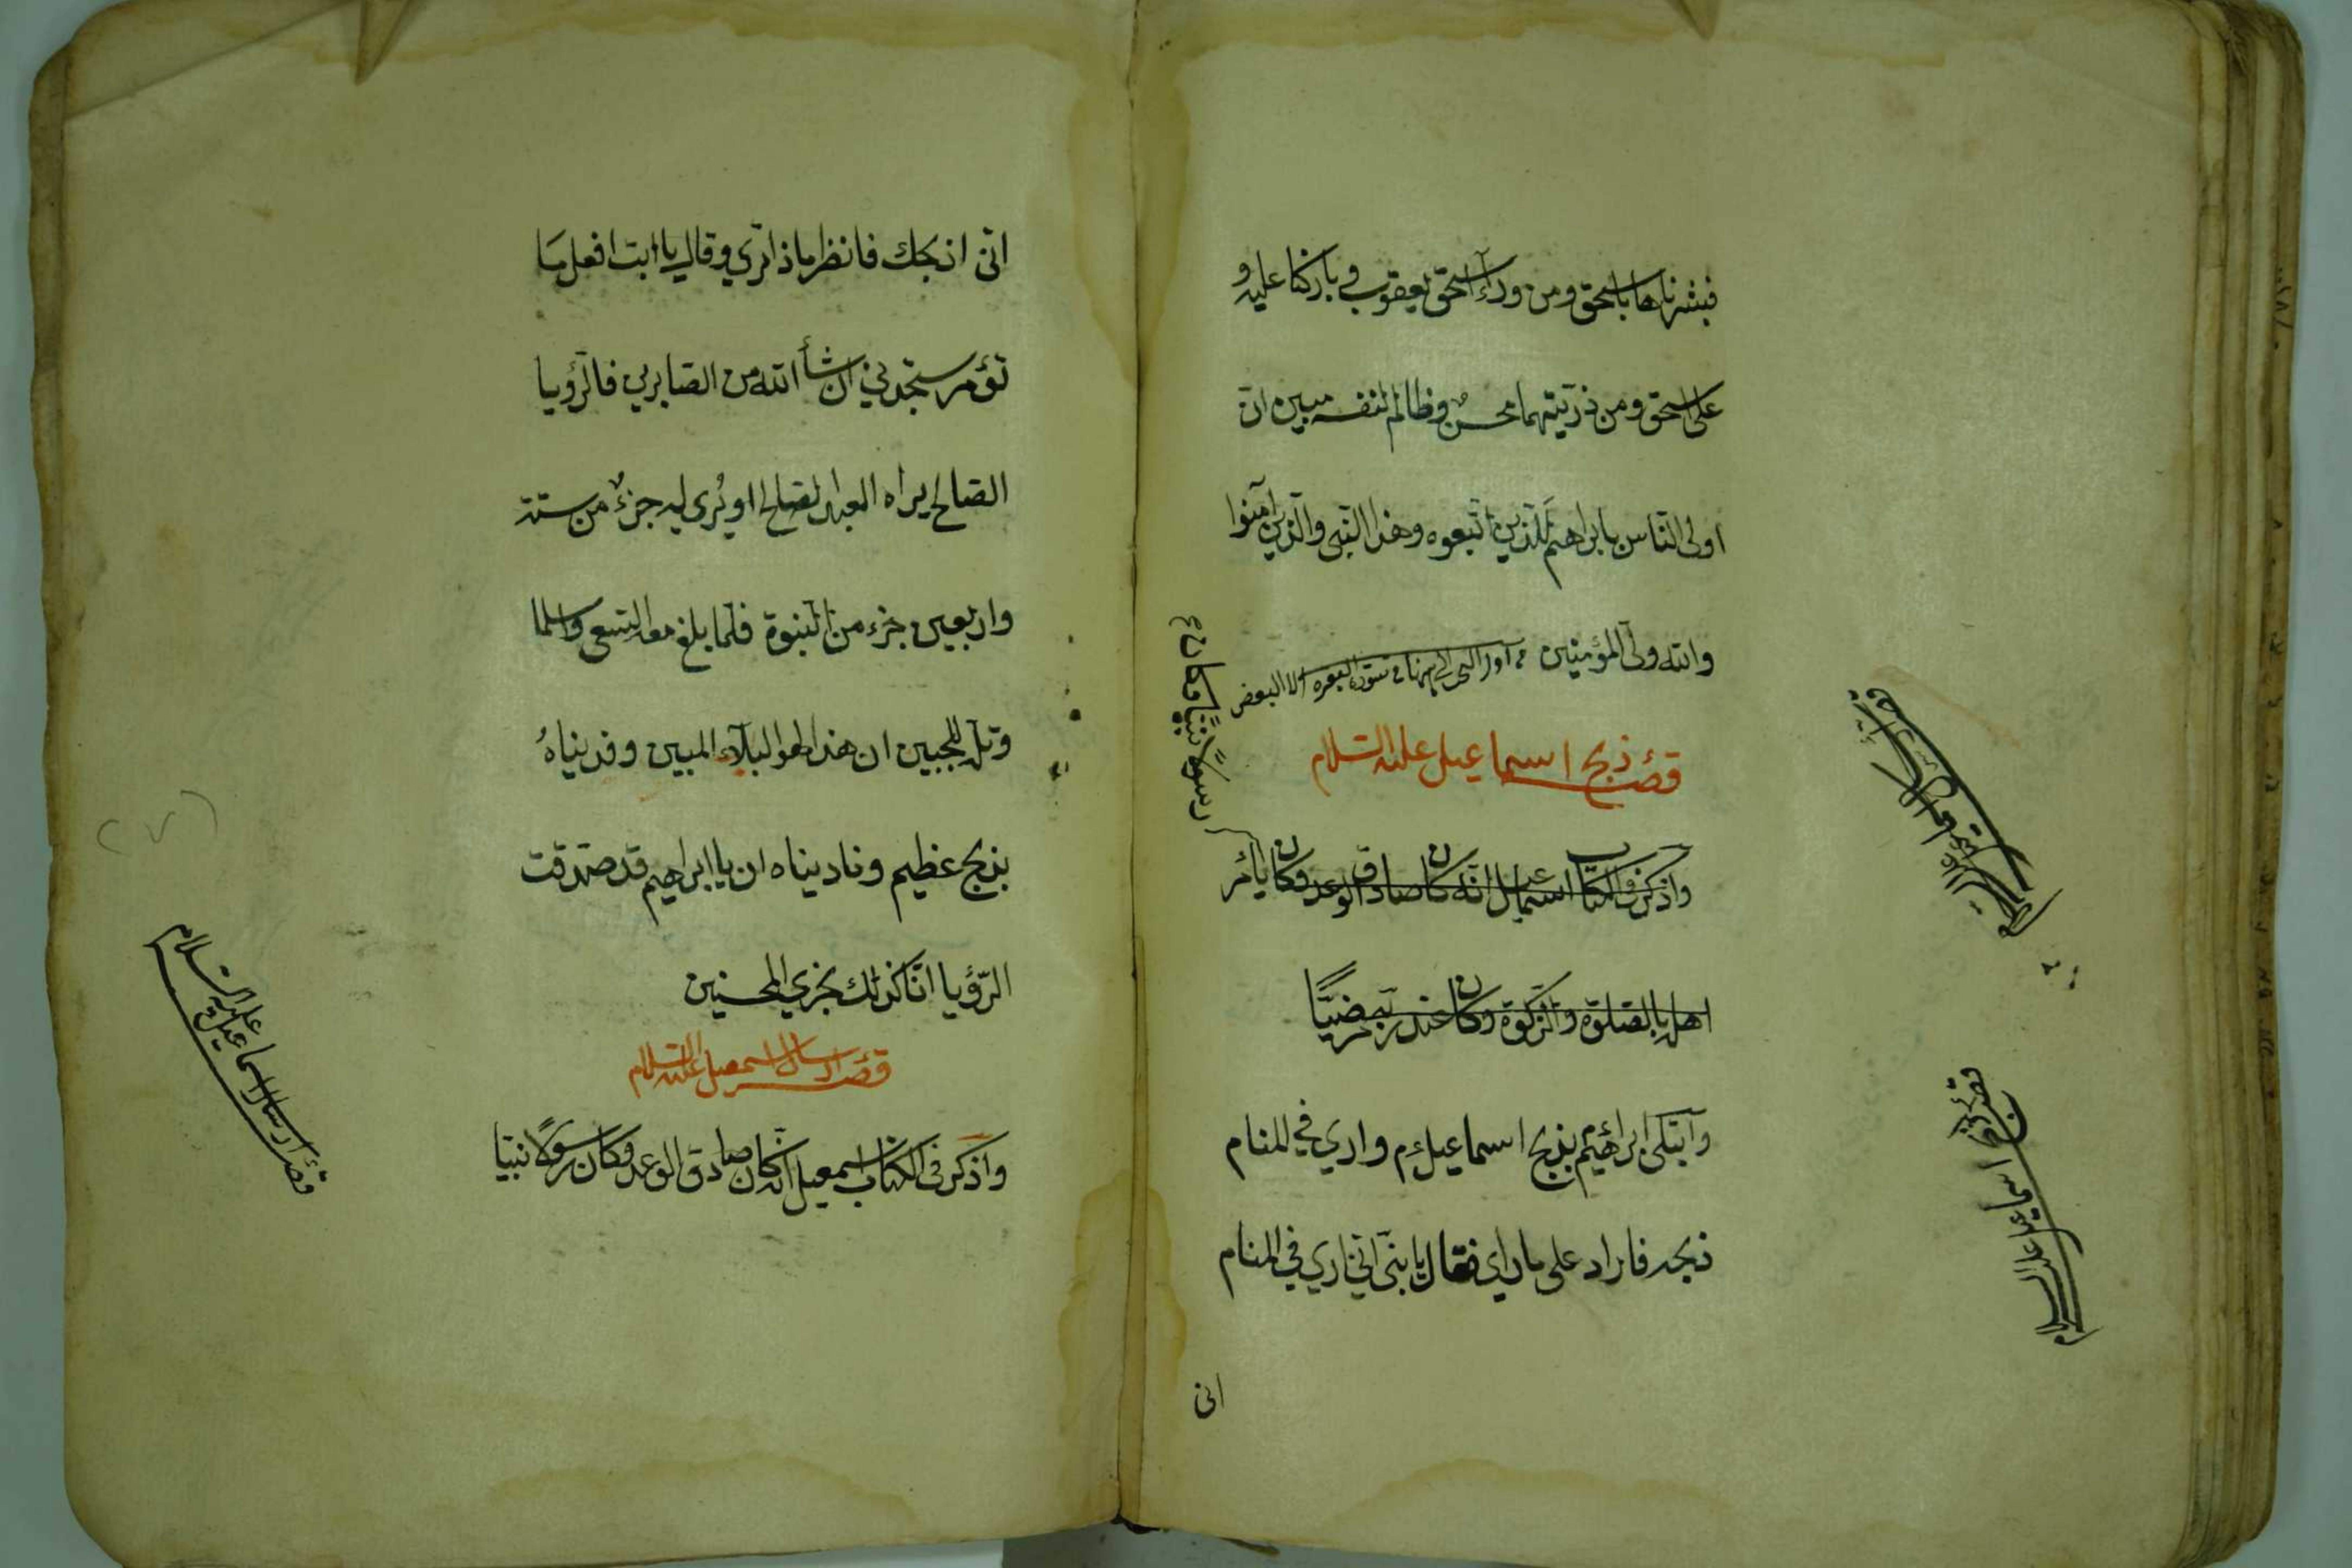 فبشرناها باسحق ومن ورآء اسحق يعقوب في باركنا عليه و
على اسحق ومن ذريتهما محسنٌ وظالم لنفسه مبين ان
اولى الناس بابراهيم للذين اتبعوه وهذا النبى والذين آمنوا
والله ولى المؤمنين
قصۀ ذبح اسماعيل عليه السلام
رسولاً نبيًا وكان
واذكر فى الكتاب اسماعيل انه كان صادق الوعد وكان يأمر
اهله بالصلوة والزكوة وكان عند ربه مرضيًّا
وابتلى ابراهيم بذبح اسماعيل م وارى في المنام
ذبحه فاراد على ما راى فقال يا بنىّ انى ارى في المنام
انى
قصۀ ذبح اسماعيل عليه السلام
انى اذبحك فانظر ماذا ترى وقال يا ابت افعل ما
تؤمر ستجدني ان شأ الله من الصابرين فالرؤيا
الصالح يراه العبد الصالح او يُرى له جزءٌ من ستة
واربعين جزء من النبوة فلما بلغ معه السعى واسلما
وتله للجبين ان هذا لهو البلآء المبين وفديناهُ
بذبح عظيم وناديناه ان يا ابراهيم قد صدقت
الرّؤيا انّا كذلك نجزي المحسنين
قصۀ ارسال اسمعيل عليه السلام
واذكر فى الكتاب اسمعيل انه كان صادق الوعد وكان رسولًا نبيّا
قصۀ ارسال اسماعيل عليه السلام